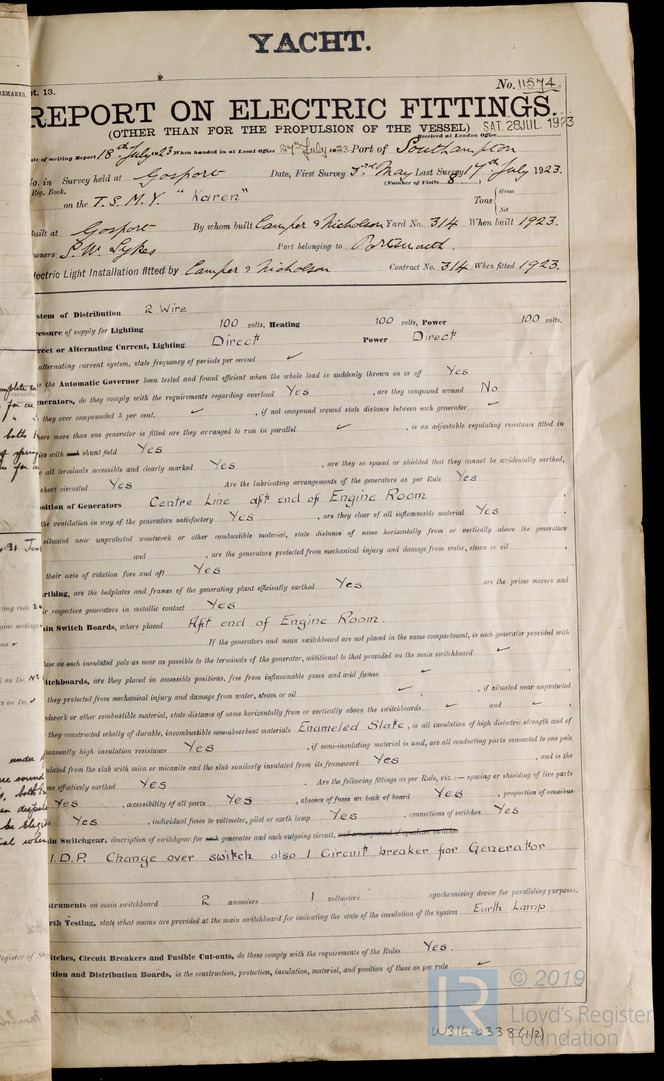 YACHT.
pt. 13.
No. 11574
REPORT ON ELECTRIC FITTINGS.
(OTHER THAN FOR THE PROPULSION OF THE VESSEL) SAT. 28 JUL. 1923
Received at London Office
ate of writing Report 18th July 1923 When handed in at Local Office 27th July 1923 Port of Southampton
No. in Survey held at Gosport Date, First Survey 3rd May Last Survey 17th July 1923.
Reg. Book. (Number of Visits 8)
on the T.S.M.Y. "Karen" Tons { Gross
Net
Built at Gosport By whom built Camper & Nicholson Yard No. 314 When built 1923.
wners P. W. Sykes Port belonging to Portsmouth.
lectric Light Installation fitted by Camper & Nicholson Contract No. 314 When fitted 1923.
stem of Distribution 2 Wire
essure of supply for Lighting 100 volts, Heating 100 volts, Power 100 volts.
rect or Alternating Current, Lighting Direct Power Direct
alternating current system, state frequency of periods per second ✓
s the Automatic Governor been tested and found efficient when the whole load is suddenly thrown on or off Yes
enerators, do they comply with the requirements regarding overload Yes , are they compound wound No
, they over compounded 5 per cent. ✓ , if not compound wound state distance between each generator ✓
here more than one generator is fitted are they arranged to run in parallel ✓ , is an adjustable regulating resistance fitted in
ies with each shunt field Yes
all terminals accessible and clearly marked Yes , are they so spaced or shielded that they cannot be accidentally earthed,
short circuited Yes Are the lubricating arrangements of the generators as per Rule Yes
osition of Generators Centre Line aft end of Engine Room
the ventilation in way of the generators satisfactory Yes , are they clear of all inflammable material Yes ,
situated near unprotected woodwork or other combustible material, state distance of same horizontally from or vertically above the generators
and , are the generators protected from mechanical injury and damage from water, steam or oil ,
their axis of rotation fore and aft Yes
arthing, are the bedplates and frames of the generating plant efficiently earthed Yes are the prime movers and
ir respective generators in metallic contact Yes
ain Switch Boards, where placed Aft end of Engine Room.
If the generators and main switchboard are not placed in the same compartment, is each generator provided with
fuse on each insulated pole as near as possible to the terminals of the generator, additional to that provided on the main switchboard ✓
itchboards, are they placed in accessible positions, free from inflammable gases and acid fumes ✓ ,
they protected from mechanical injury and damage from water, steam or oil ✓ , if situated near unprotected
odwork or other combustible material, state distance of same horizontally from or vertically above the switchboards ✓ and ✓ ,
they constructed wholly of durable, incombustible non-absorbent materials Enameled Slate , is all insulation of high dielectric strength and of
rmanently high insulation resistance Yes , if semi-insulating material is used, are all conducting parts connected to one pole
ulated from the slab with mica or micanite and the slab similarly insulated from its framework Yes , and is the
me effectively earthed Yes . Are the following fittings as per Rule, viz.:— spacing or shielding of live parts
Yes , accessibility of all parts Yes , absence of fuses on back of board Yes , proportion of omnibus
Yes , individual fuses to voltmeter, pilot or earth lamp Yes , connections of switches Yes
ain Switchgear, description of switchgear for each generator and each outgoing circuit,
D.P. Change over switch also 1 Circuit breaker for Generator
struments on main switchboard 2 ammeters 1 voltmeters synchronizing device for paralleling purposes.
rth Testing, state what means are provided at the main switchboard for indicating the state of the insulation of the system Earth Lamp
itches, Circuit Breakers and Fusible Cut-outs, do these comply with the requirements of the Rules Yes.
ction and Distribution Boards, is the construction, protection, insulation, material, and position of these as per rule ✓
© 2019
LR
Lloyd's Register
Foundation
W314-0338 (1/2)